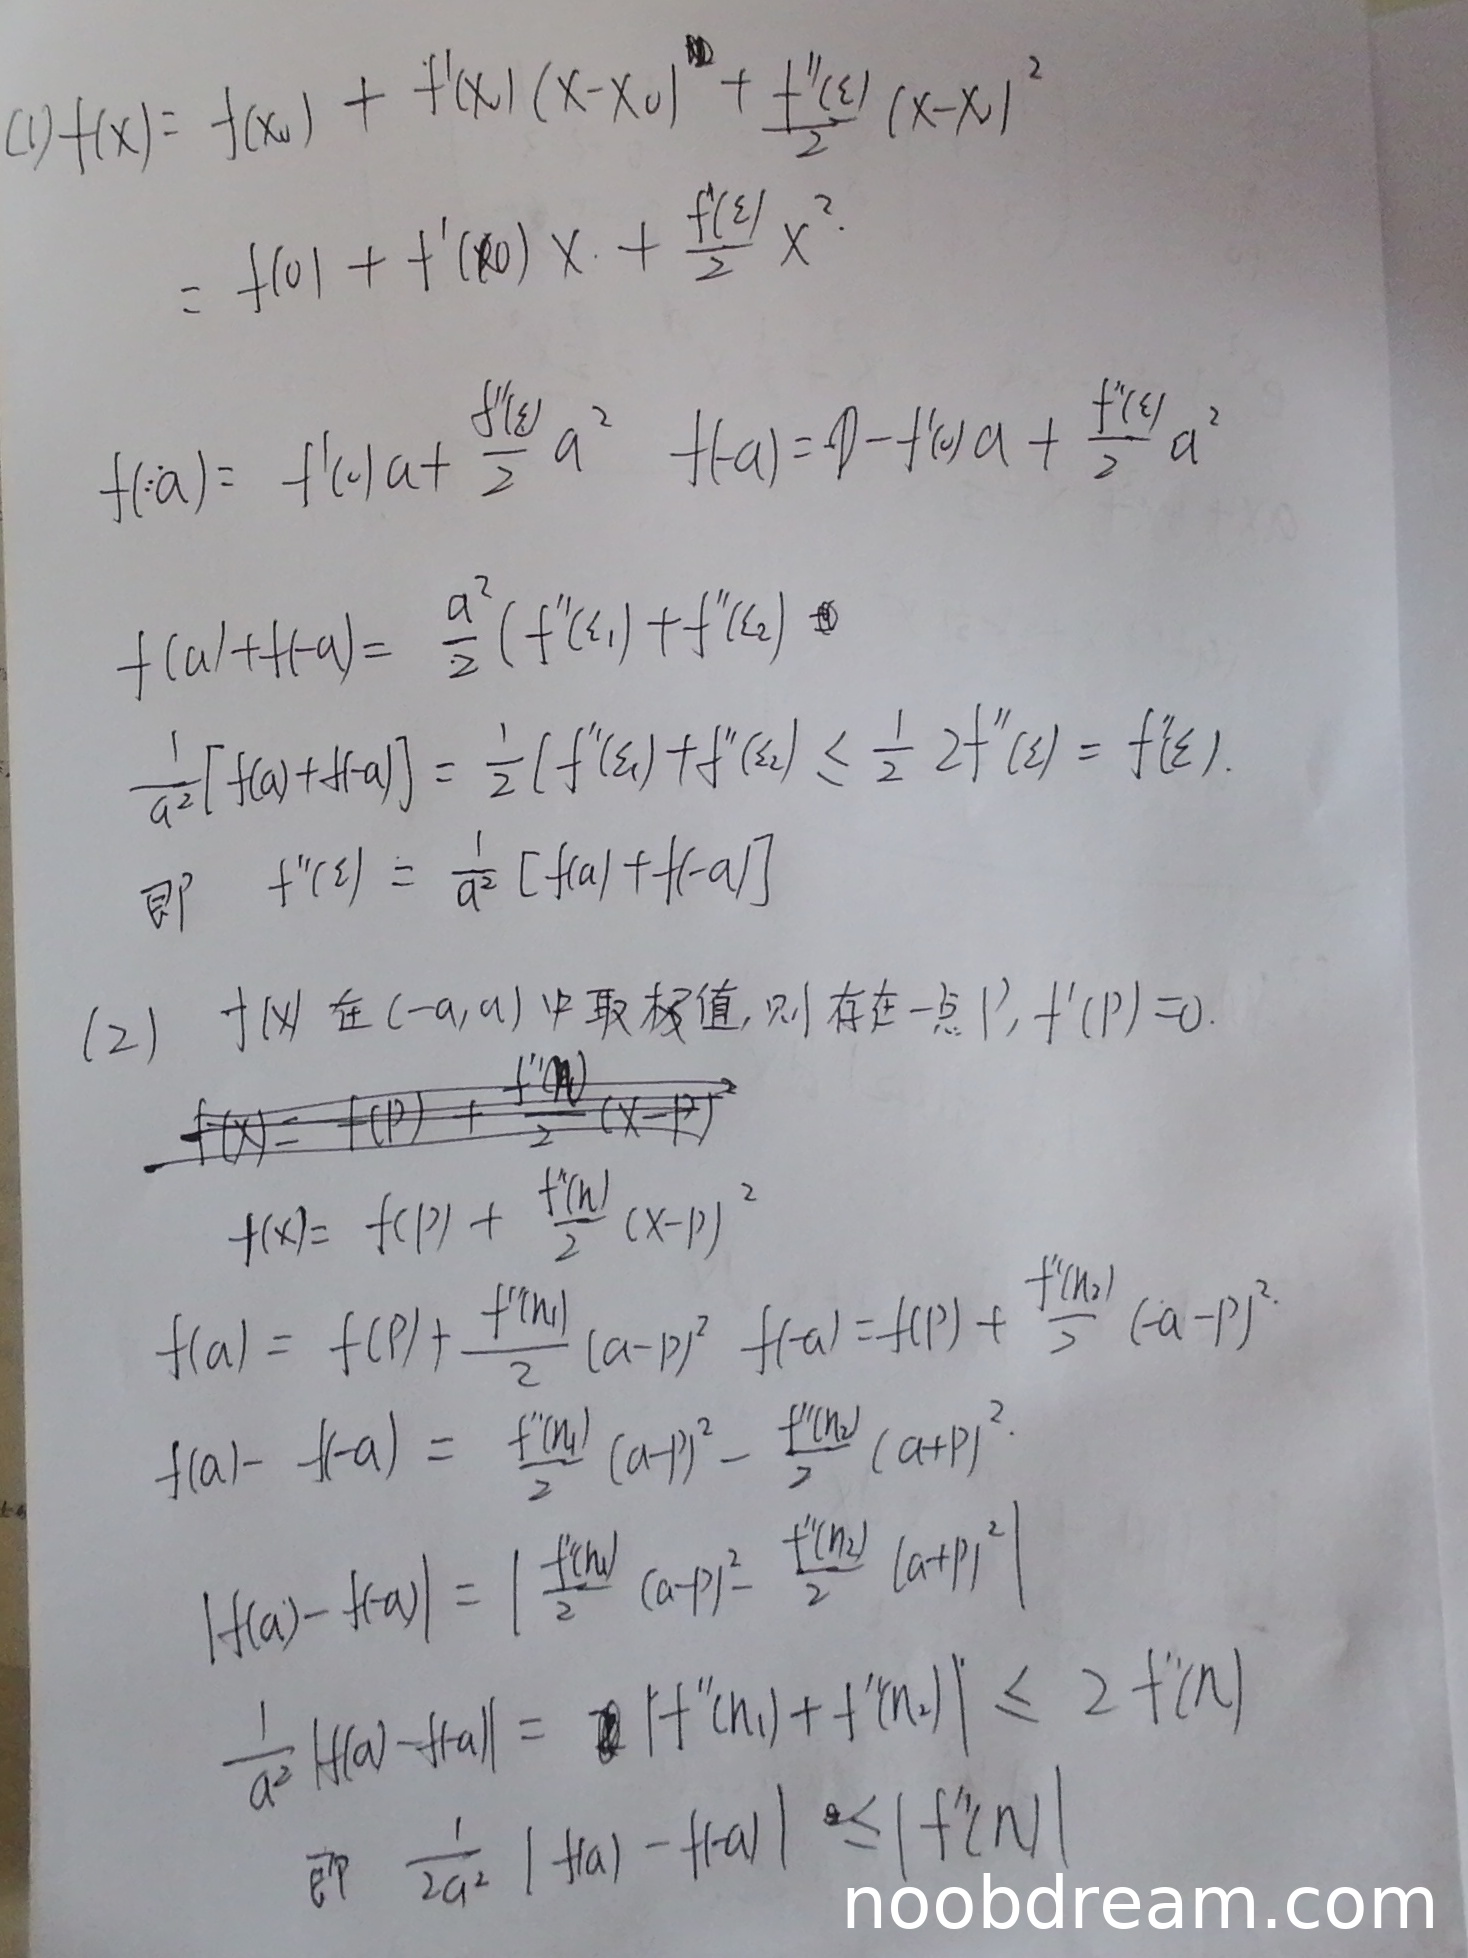 (1) f(x) = f(x₀) + f'(x₀)(x-x₀) + f''(ξ)/2 (x-x₀)²
= f(0) + f'(0)x + f'(ξ)/2 x².
f(a) = f'(0)a + f''(ξ)/2 a² f(-a) = -f'(0)a + f''(ξ)/2 a²
f(a)+f(-a) = a²/2 (f''(ξ₁)+f''(ξ₂)
1/a² [f(a)+f(-a)] = 1/2 (f''(ξ₁)+f''(ξ₂) ≤ 1/2 2f''(ξ) = f''(ξ).
即 f''(ξ) = 1/a² [f(a)+f(-a)]
(2) f(x) 在 (-a,a) 中取极值,则存在一点P, f'(P)=0.
f(x) = f(P) + f''(η)/2 (x-P)²
f(x) = f(P) + f''(η)/2 (x-P)²
f(a) = f(P) + f''(η₁)/2 (a-P)² f(-a) = f(P) + f''(η₂)/2 (-a-P)².
f(a) - f(-a) = f''(η₁)/2 (a-P)² - f''(η₂)/2 (a+P)².
|f(a) - f(-a)| = |f''(η₁)/2 (a-P)² - f''(η₂)/2 (a+P)²|
1/a² |f(a)-f(-a)| = |f''(η₁)+f''(η₂)| ≤ 2f''(η)
即 1/2a² |f(a) - f(-a)| ≤ |f''(η)|
noobdream.com